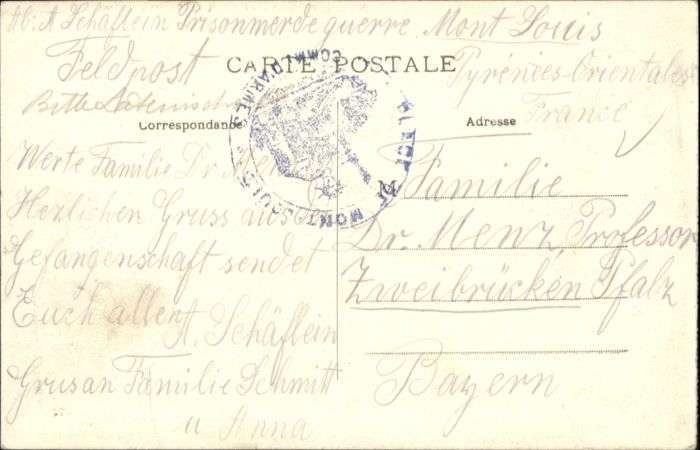 Ab: A Schäflein Prisonmerde guerre Mont Louis
Pyrénées-Orientales
France
Feldpost
CARTE POSTALE
Bitte
Correspondance
Adresse
Werte Familie Dr Menz
Herzlichen Gruss aus
Gefangenschaft sendet
Euch allen
A. Schäflein
Grusan Familie Schmitt
u Anna
M
Familie
Dr. Menz, Professor
Zweibrücken Pfalz
Bayern
PLACE DE MONT-LOUIS
COMM D'ARMES